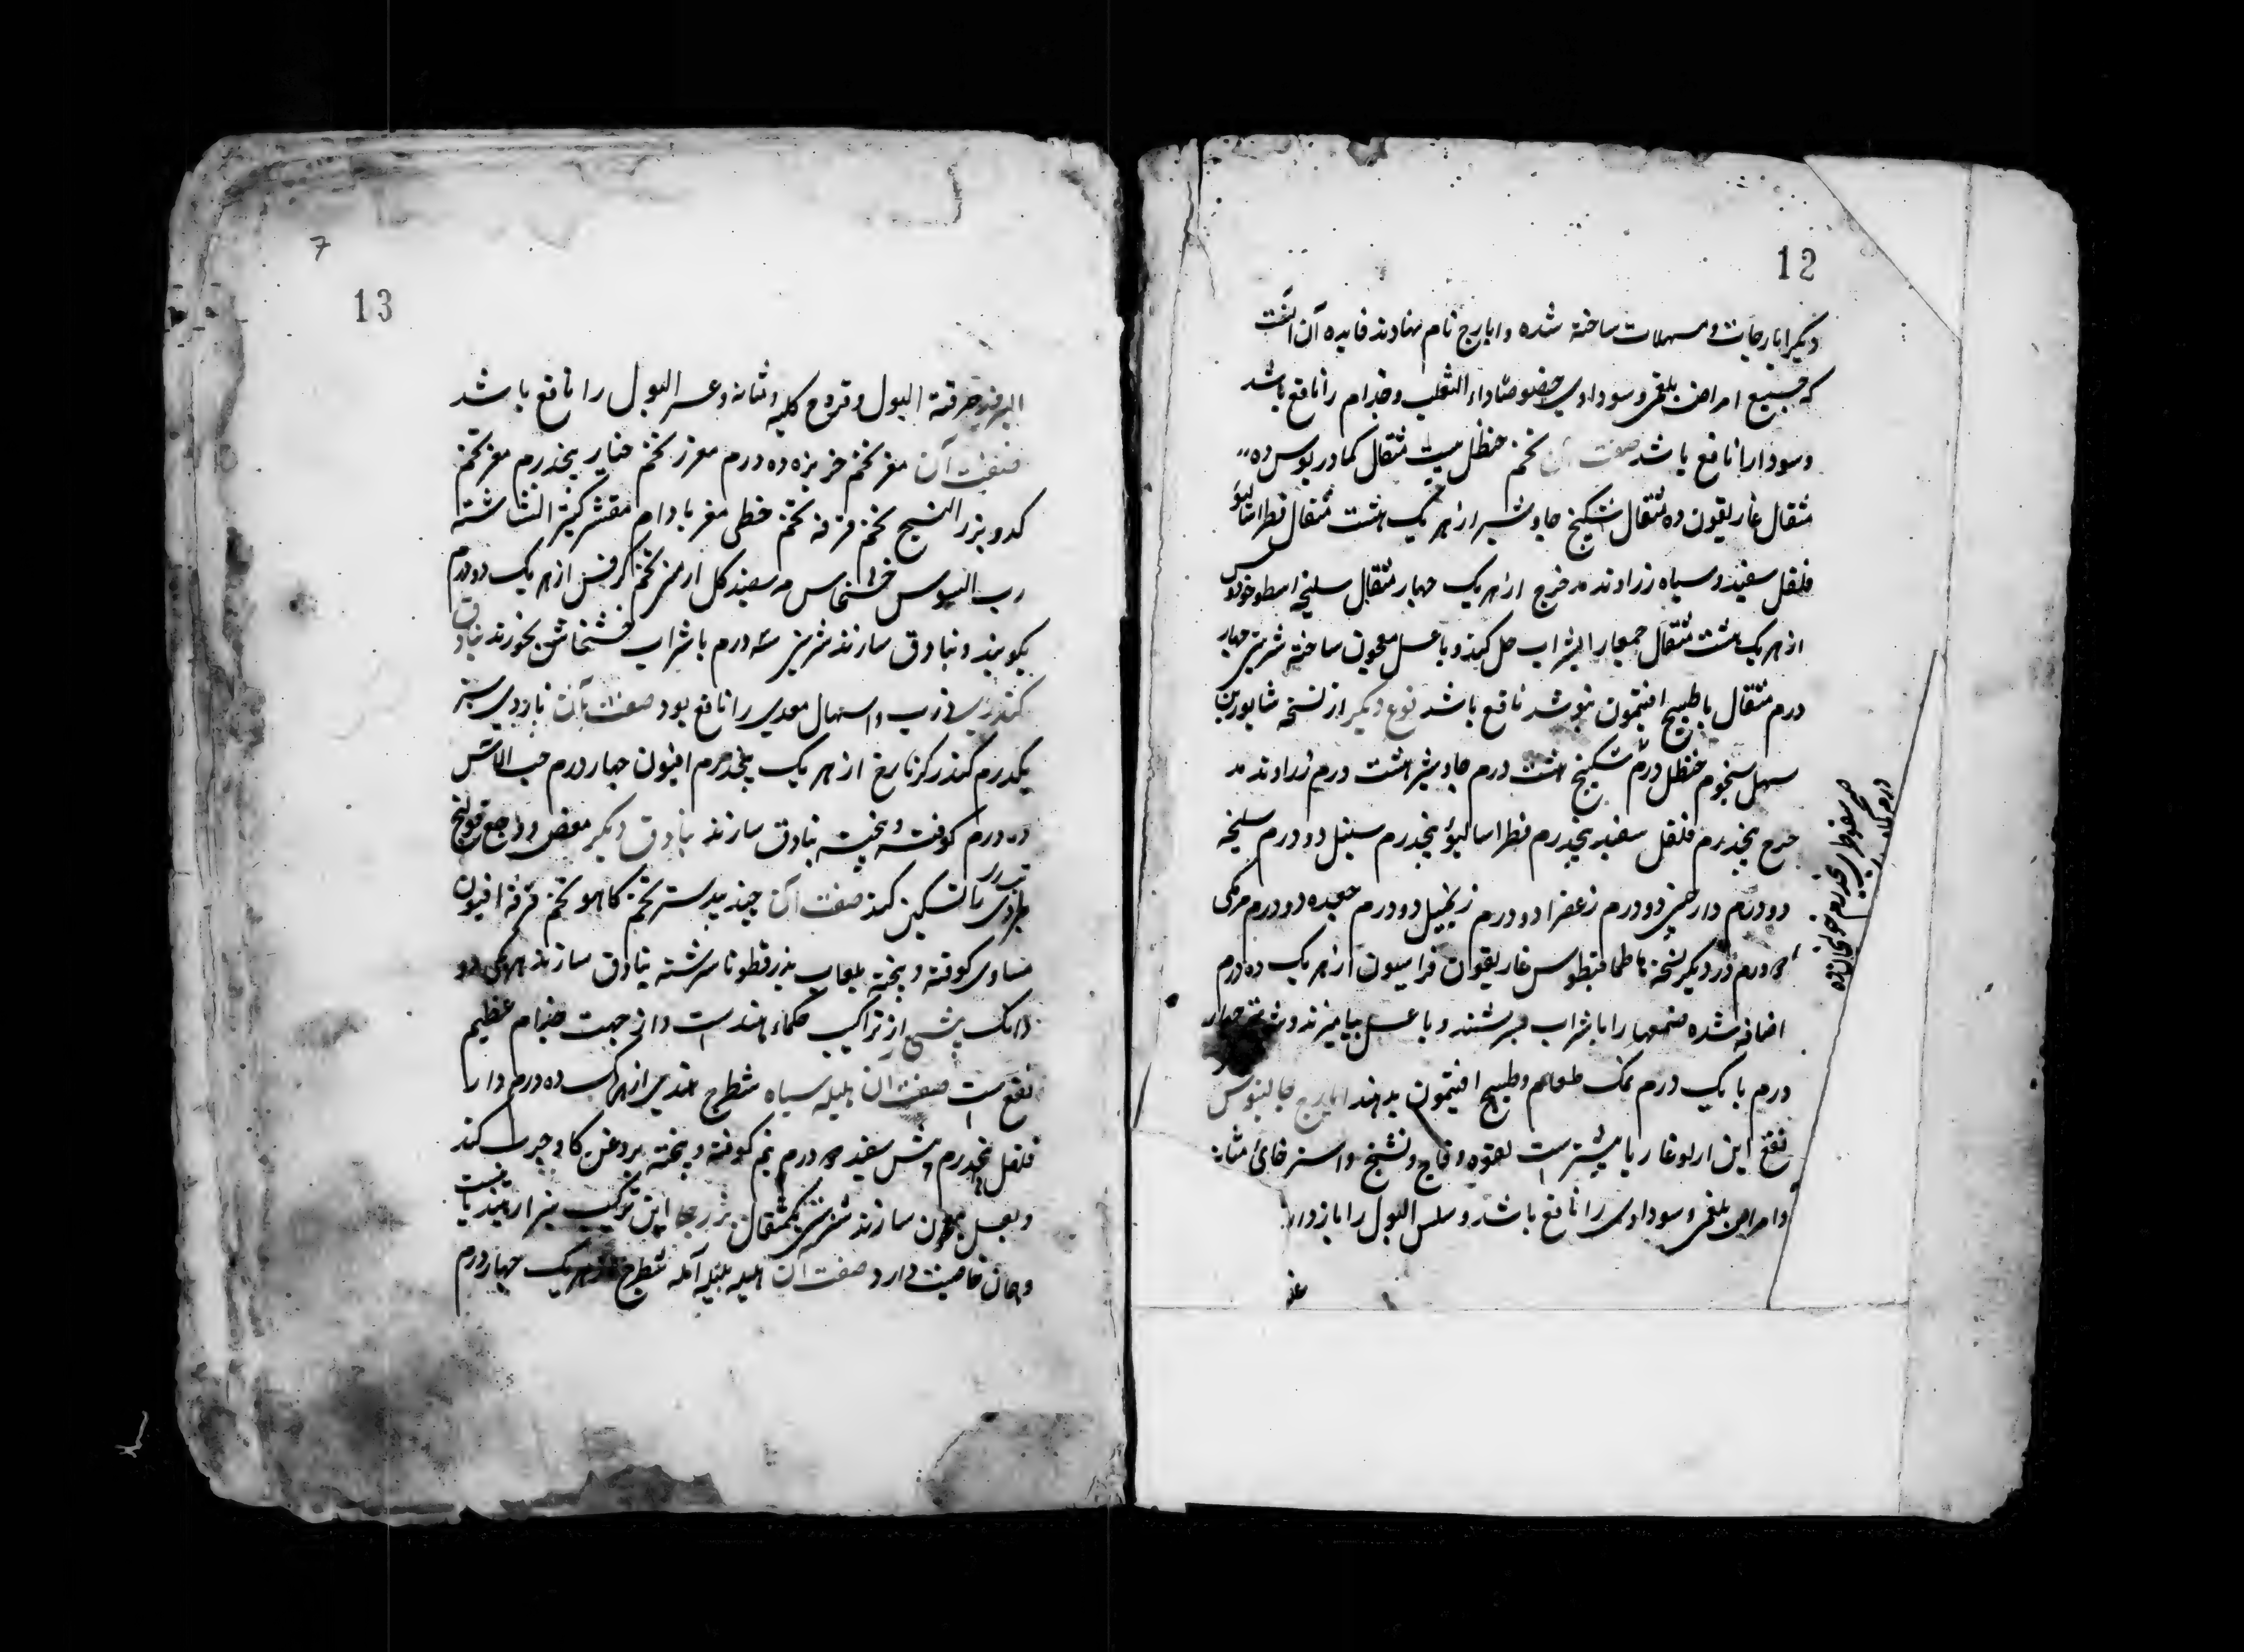 12
دیگر ایارجات و مسهلات ساخته شده و ایارج نام نهادند فایده آن آنست
که جمیع امراض بلغمی و سوداوی خصوصا داء الثعلب و جذام را نافع باشد
و سودا را نافع باشد صفت آن تخم حنظل بیست مثقال کمادریوس ده
مثقال غاریقون ده مثقال سکبینج جاوشیر از هر یک هشت مثقال فطراسالیو
فلفل سفید و سیاه زراوند مدحرج از هر یک چهار مثقال سلیخه اسطوخودوس
از هر یک هشت مثقال جمعها را بشراب حل کنند و با عسل معجون ساخته شربتی چهار
درم مثقال با طبیخ افتیمون بنوشد نافع باشد نوع دیگر از نسخه شاپور بن
سهل شحم حنظل درم سکبینج هشت درم جاوشیر هشت درم زراوند مد
حرج پنجدرم فلفل سفید پنجدرم فطراسالیو پنجدرم سنبل دو درم سلیخه
دو درم دارچینی دو درم زعفران دو درم زنجبیل دو درم جعده دو درم مرمکی
درم در دیگر نسخه غاریقون فراسیون از هر یک ده درم
اضافه شده صمغها را با شراب بسرشند و با عسل بیامیزند و شربتی چهار
درم با یک درم نمک طعام و طبیخ افتیمون بدهند ایارج جالینوس
نفع این از لوغاریا بیشترست لقوه و فالج و تشنج و استرخای مثانه
و امراض بلغمی و سوداوی را نافع باشد و سلس البول را باز دارد
7
13
حرقة البول و قروح کلیه و مثانه و عسر البول را نافع باشد
صفت آن مغز تخم خربزه ده درم مغز تخم خیار پنجدرم مغز تخم
کدو بزر البنج تخم خرفه تخم خطمی مغز بادام مقشر کثیرا نشاسته
رب السوس خشخاش سفید گل ارمنی تخم کرفس از هر یک دو درم
بکوبند و بنادق سازند شربتی سه درم با شراب خشخاش بخورند بنادق
ذرب و اسهال معدی را نافع بود صفت آن بازوی سبز
یکدرم کندر گزمازج از هر یک پنجدرم افیون چهار درم حب الآس
ده درم کوفته و بیخته بنادق سازند بنادق دیگر مغص و وجع قولنج
را تسکین کند صفت آن جندبیدستر تخم کاهو تخم خرفه افیون
مساوی کوفته و بیخته بلعاب بذرقطونا سرشته بنادق سازند هر یکی دو
دانگ از تراکیب حکماء هندست و از جهت جذام عظیم
نفع است صفت آن هلیله سیاه شطرج هندی از هر یک ده درم دار
فلفل پنجدرم بیش سفید درم نیم کوفته و بیخته بروغن گاو چرب کند
و بعسل معجون سازند شربتی یکمثقال این ترکیب
و همان خاصیت دارد صفت آن هلیله بلیله آمله شطرج از هر یک چهار درم